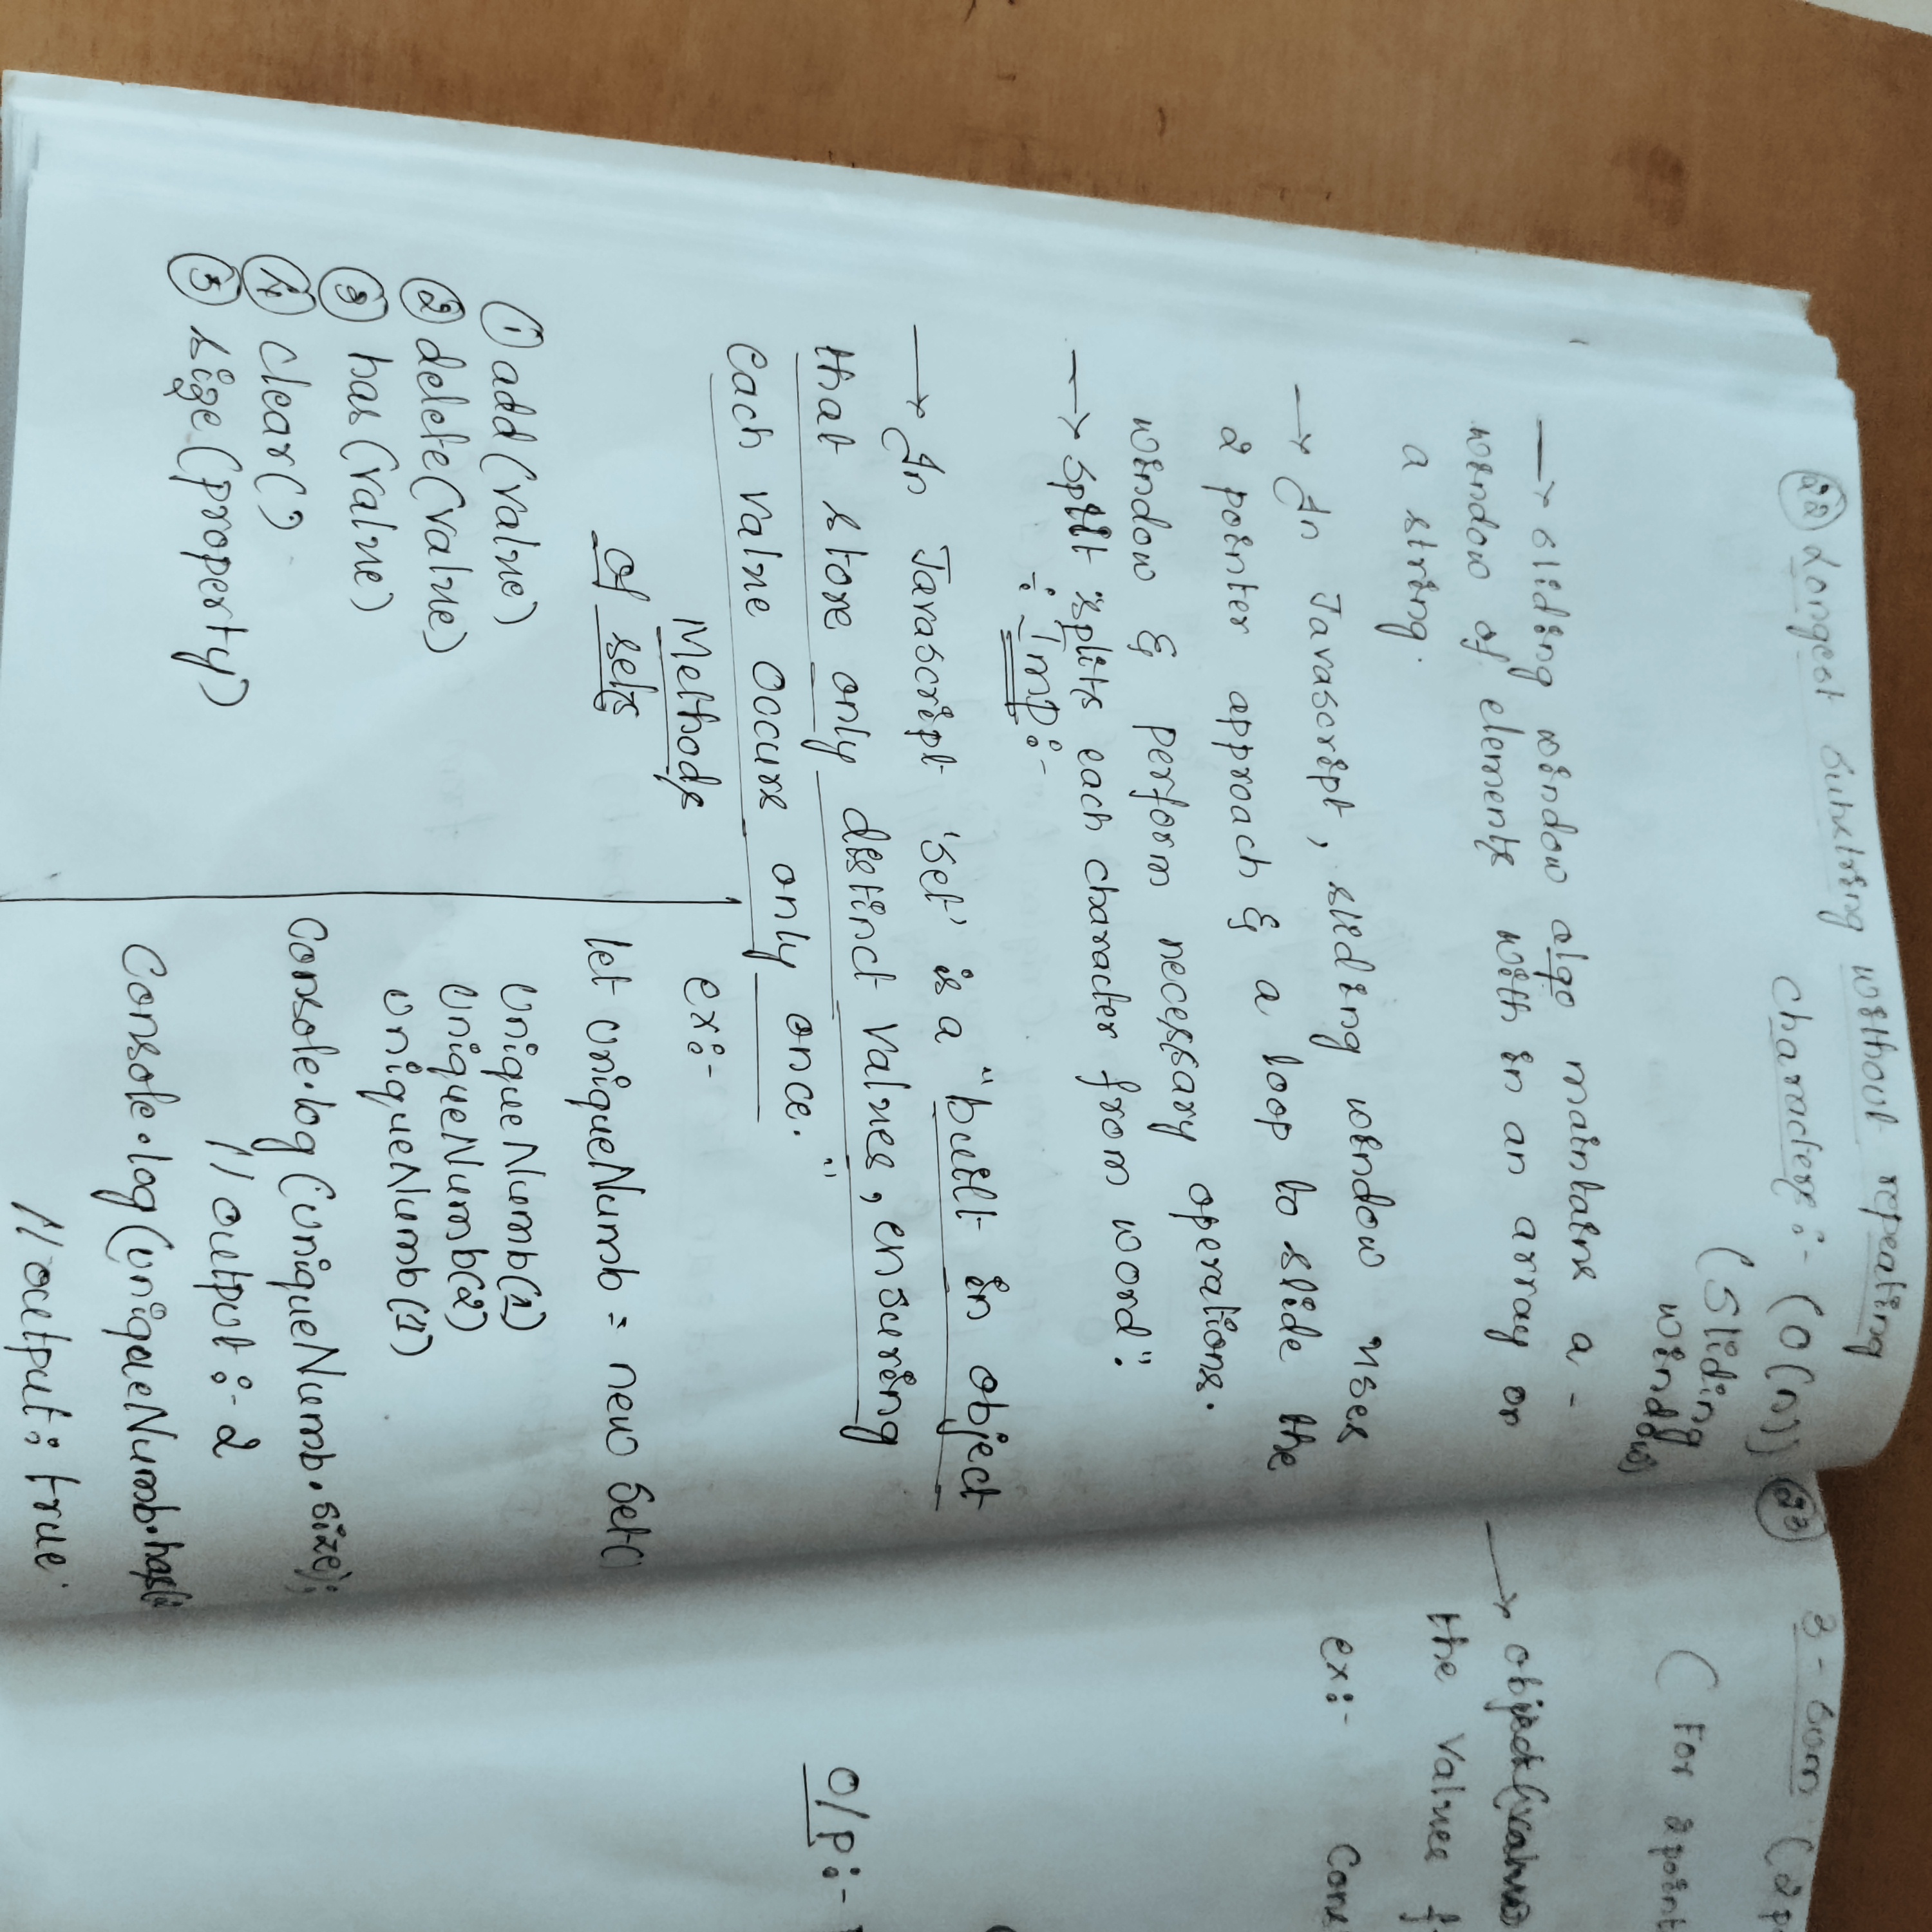 22 Longest substring without repeating
characters :- (O(n))
(Sliding
window)
→ sliding window algo maintains a -
window of elements with in an array or
a string.
→ In Javascript, sliding window uses
2 pointer approach & a loop to slide the
window & perform necessary operations.
→ split "splits each character from word".
:- Imp:-
→ In Javascript 'set' is a "built in object
that store only distinct values, ensuring
each value occurs only once."
Methods
of sets
① add(value)
② delete(value)
③ has(value)
④ clear()
⑤ size(property)
ex:-
let uniqueNumb = new Set()
uniqueNumb(1)
uniqueNumb(2)
uniqueNumb(1)
Console.log(uniqueNumb.size);
// output :- 2
Console.log(uniqueNumb.has(
// output: true.
3-sum (2p
( For 2 point
→
the values
ex:- Cons
O/P:-